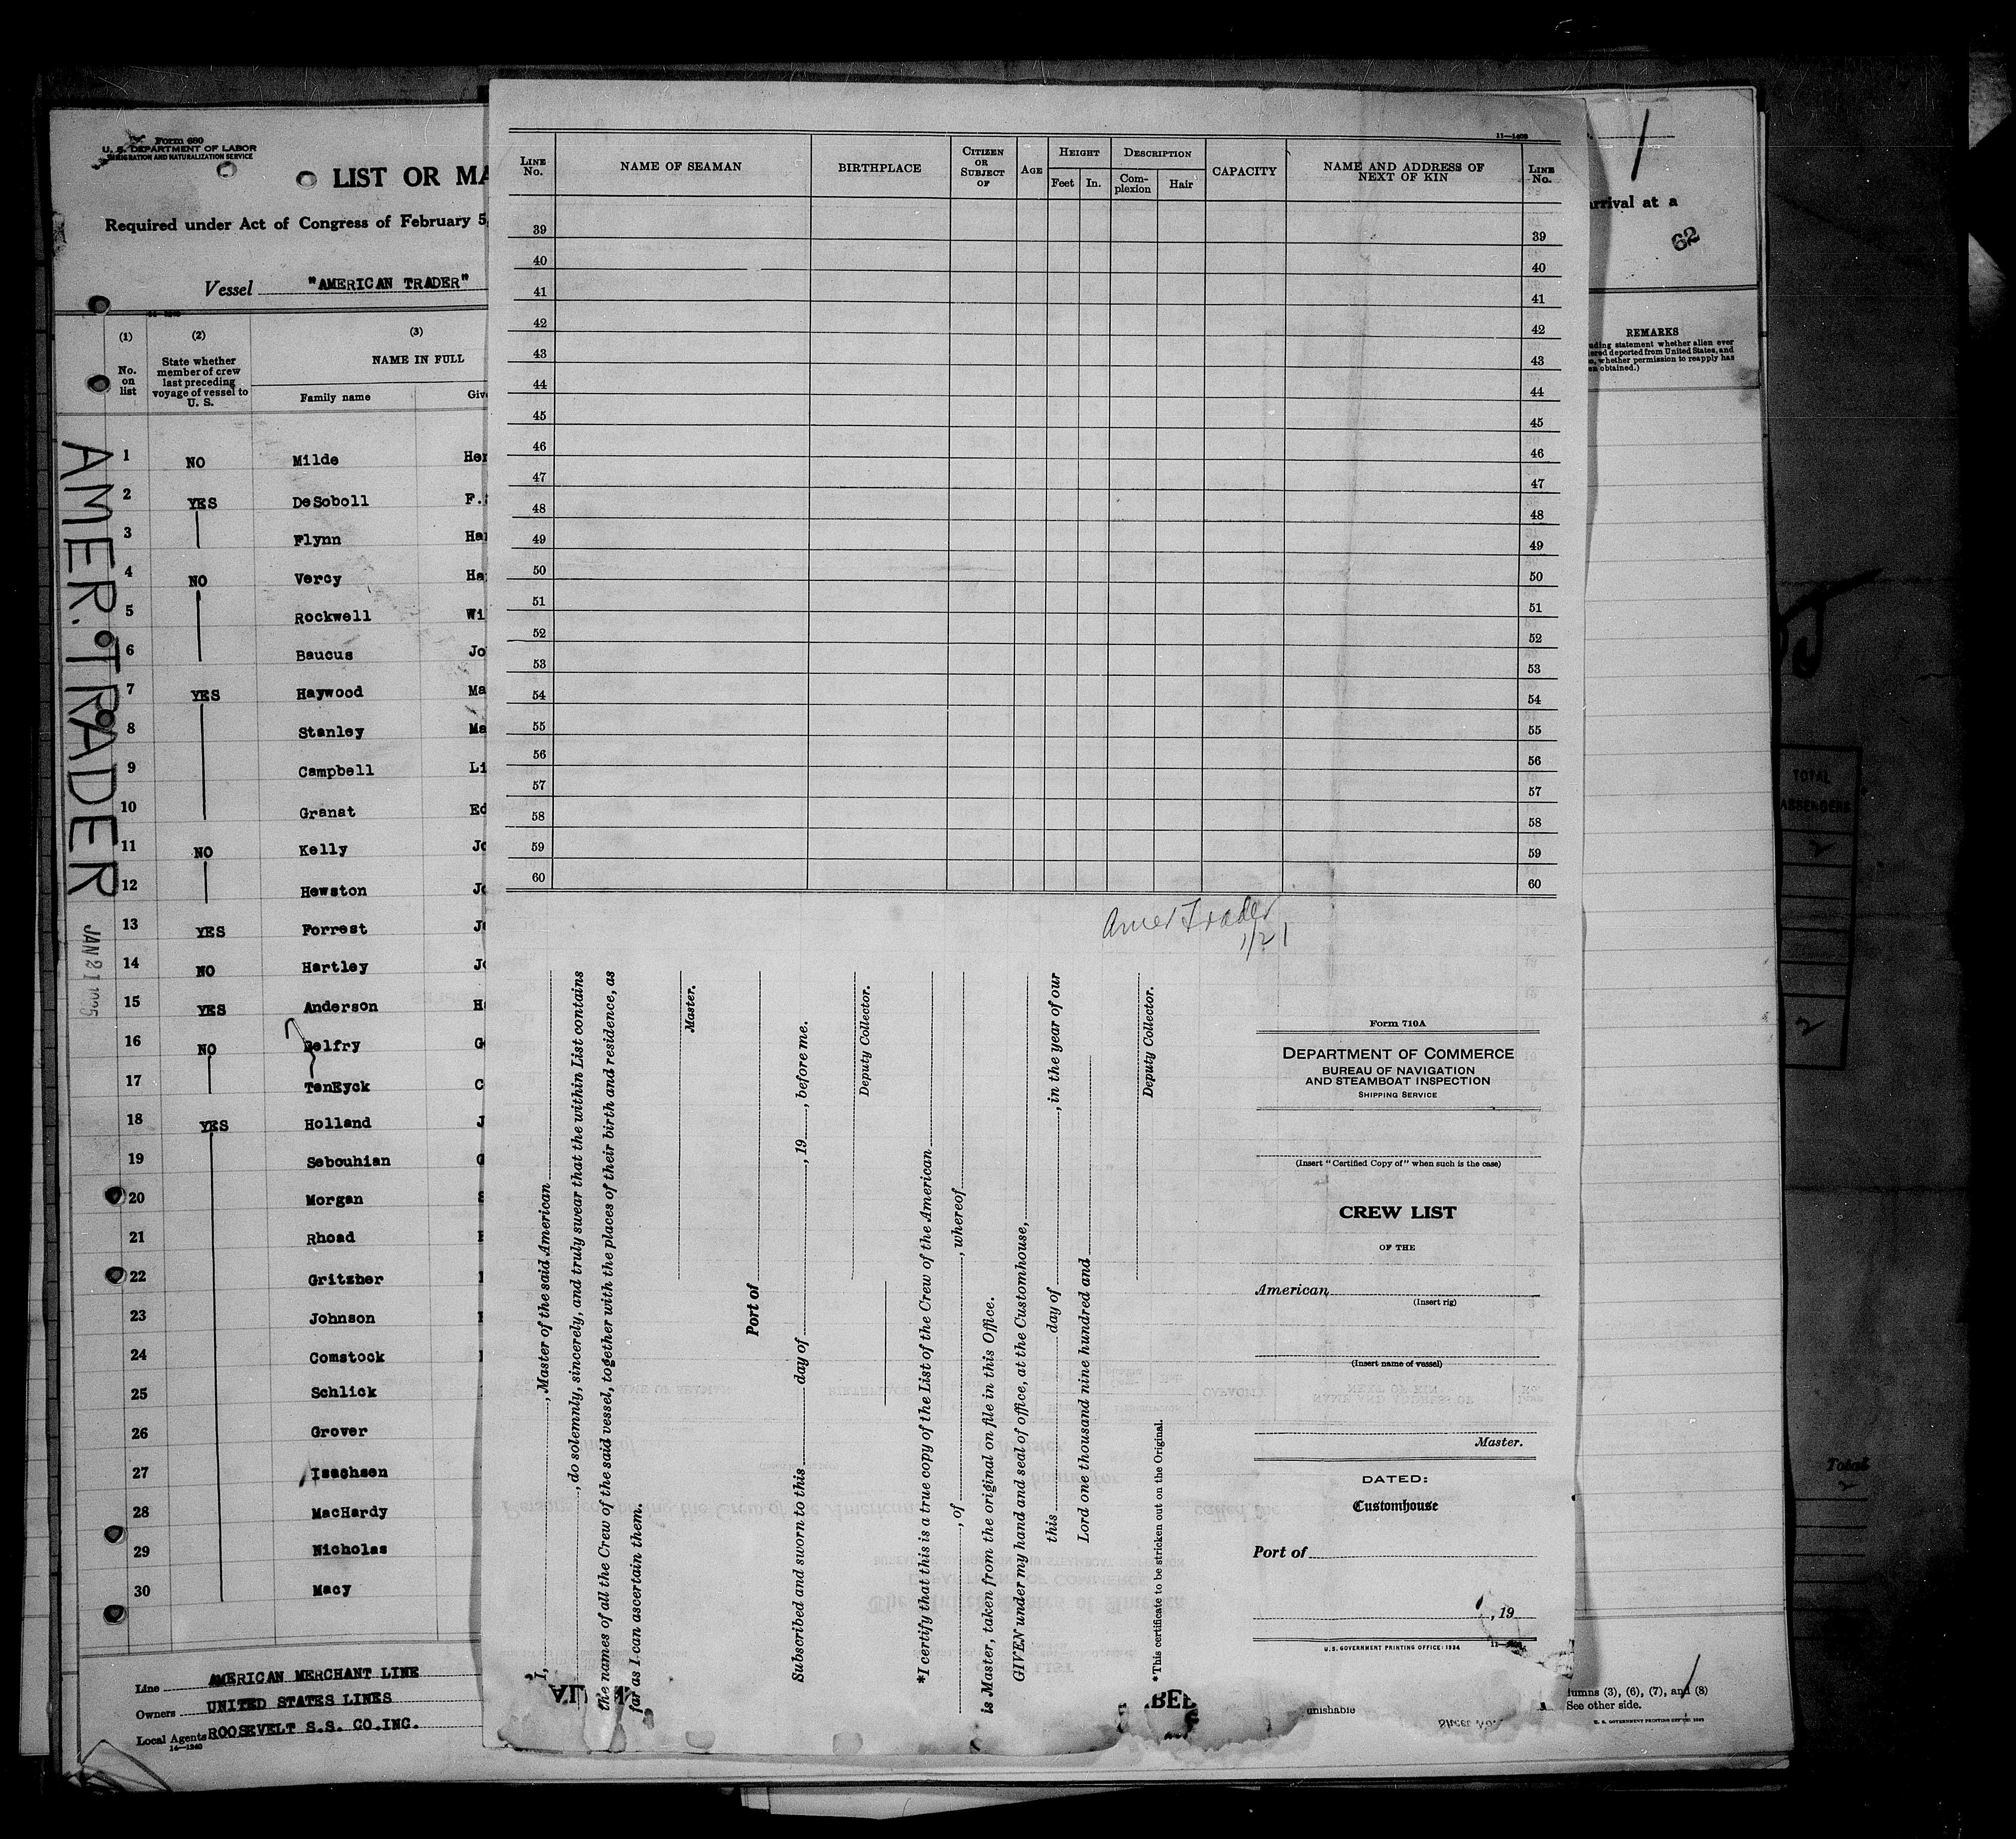 Form 680
U. S. DEPARTMENT OF LABOR
IMMIGRATION AND NATURALIZATION SERVICE
LIST OR MA
Required under Act of Congress of February 5,
Vessel "AMERICAN TRADER"
(1) (2) (3)
No. on list
State whether member of crew last preceding voyage of vessel to U. S.
NAME IN FULL
Family name Giv
1 NO Milde Her
2 YES DeSoboll F.
3 Flynn Har
4 NO Vercy Ha
5 Rockwell Wi
6 Baucus Jo
7 YES Haywood Ma
8 Stanley Ma
9 Campbell Li
10 Granat Ed
11 NO Kelly Jo
12 Hewston Jo
13 YES Forrest J
14 NO Hartley Jo
15 YES Anderson H
16 NO Belfry G
17 TenEyck C
18 YES Holland J
19 Sebouhian G
20 Morgan S
21 Rhoad
22 Gritzher
23 Johnson
24 Comstock
25 Schlick
26 Grover
27 Isachsen
28 MacHardy
29 Nicholas
30 Macy
AMER. TRADER
JAN 21 1935
Line AMERICAN MERCHANT LINE
Owners UNITED STATES LINES
Local Agents ROOSEVELT S.S. CO.INC.
14—1240
11—1403
LINE No.
NAME OF SEAMAN
BIRTHPLACE
CITIZEN OR SUBJECT OF
AGE
HEIGHT
Feet In.
DESCRIPTION
Com-plexion Hair
CAPACITY
NAME AND ADDRESS OF NEXT OF KIN
LINE No.
39 39
40 40
41 41
42 42
43 43
44 44
45 45
46 46
47 47
48 48
49 49
50 50
51 51
52 52
53 53
54 54
55 55
56 56
57 57
58 58
59 59
60 60
Amer Trader
1/21
I, , Master of the said American
, do solemnly, sincerely, and truly swear that the within List contains
the names of all the Crew of the said vessel, together with the places of their birth and residence, as
far as I can ascertain them.
Master.
Port of
Subscribed and sworn to this day of , 19 , before me.
Deputy Collector.
*I certify that this is a true copy of the List of the Crew of the American
, of , whereof
is Master, taken from the original on file in this Office.
GIVEN under my hand and seal of office, at the Customhouse,
this day of , in the year of our
Lord one thousand nine hundred and
Deputy Collector.
*This certificate to be stricken out on the Original.
Form 710A
DEPARTMENT OF COMMERCE
BUREAU OF NAVIGATION
AND STEAMBOAT INSPECTION
SHIPPING SERVICE
(Insert "Certified Copy of" when such is the case)
CREW LIST
OF THE
American
(Insert rig)
(Insert name of vessel)
Master.
DATED:
Customhouse
Port of
, 19
U. S. GOVERNMENT PRINTING OFFICE: 1934
1
arrival at a
62
REMARKS
uding statement whether alien ever
ered deported from United States, and
s, whether permission to reapply has
en obtained.)
TOTAL
PASSENGERS
2
2
Total
2
BEE
unishable
lumns (3), (6), (7), and (8)
See other side.